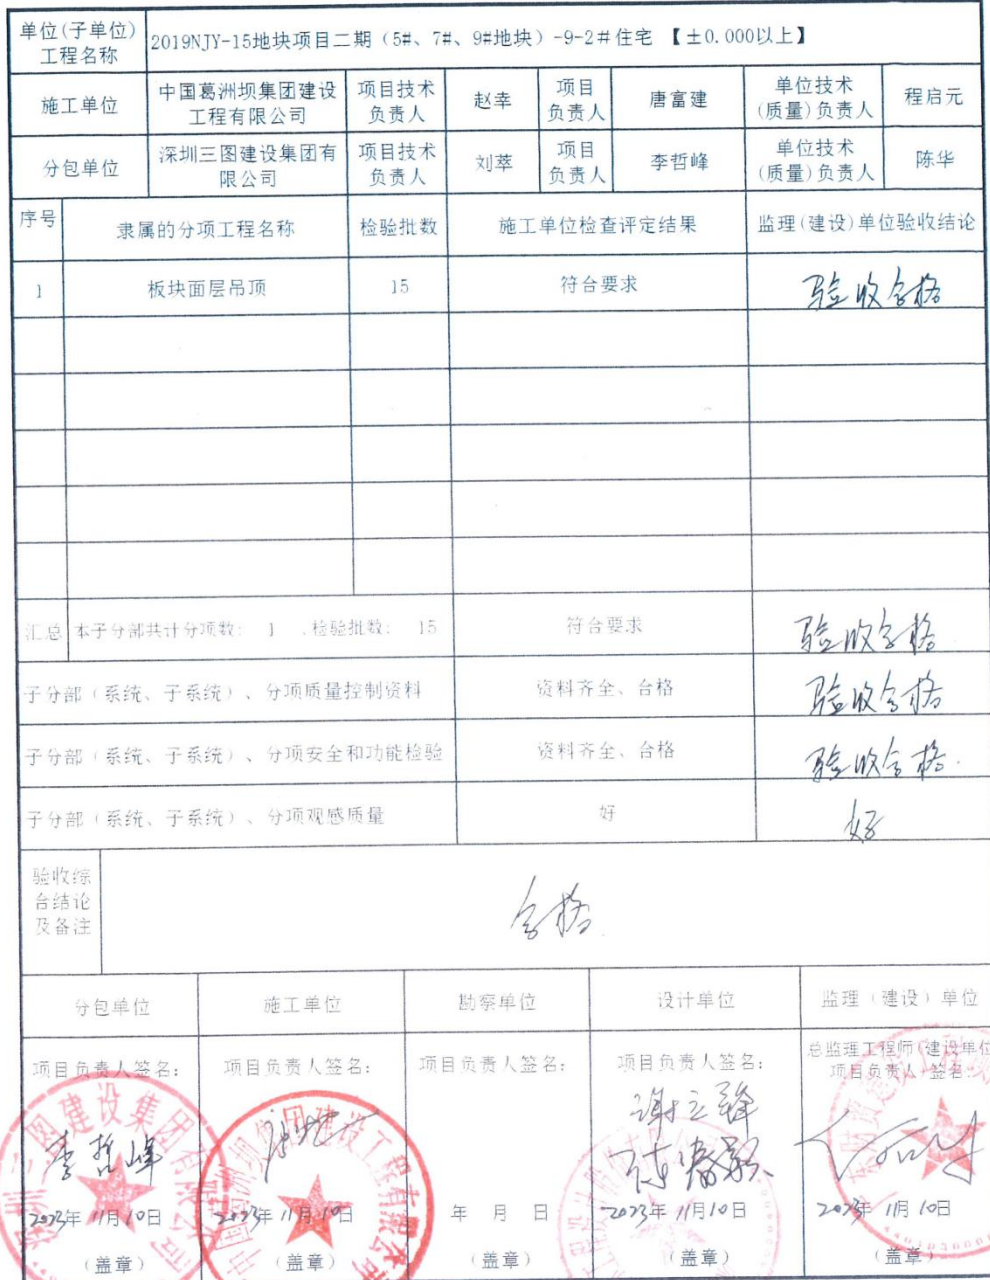 单位(子单位)
工程名称
2019NJY-15地块项目二期（5#、7#、9#地块）-9-2#住宅 【±0.000以上】
施工单位
中国葛洲坝集团建设
工程有限公司
项目技术
负责人
赵幸
项目
负责人
唐富建
单位技术
(质量)负责人
程启元
分包单位
深圳三图建设集团有
限公司
项目技术
负责人
刘萃
项目
负责人
李哲峰
单位技术
(质量)负责人
陈华
序号
隶属的分项工程名称
检验批数
施工单位检查评定结果
监理(建设)单位验收结论
1
板块面层吊顶
15
符合要求
验收合格
汇总
本子分部共计分项数： 1 ,检验批数： 15
符合要求
验收合格
子分部（系统、子系统）、分项质量控制资料
资料齐全、合格
验收合格
子分部（系统、子系统）、分项安全和功能检验
资料齐全、合格
验收合格.
子分部（系统、子系统）、分项观感质量
好
好
验收综
合结论
及备注
合格
分包单位
施工单位
勘察单位
设计单位
监理（建设）单位
项目负责人签名：
项目负责人签名：
项目负责人签名：
项目负责人签名：
总监理工程师(建设单位
项目负责人)签名：
李哲峰
谢立锋
2023年 11月 10日
2023年 11月 10日
年 月 日
2023年 11月 10日
2023年 11月 10日
（盖章）
（盖章）
（盖章）
（盖章）
（盖章）